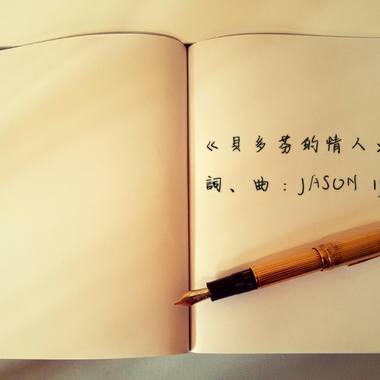 《貝多芬的情人》
詞、曲：JASON